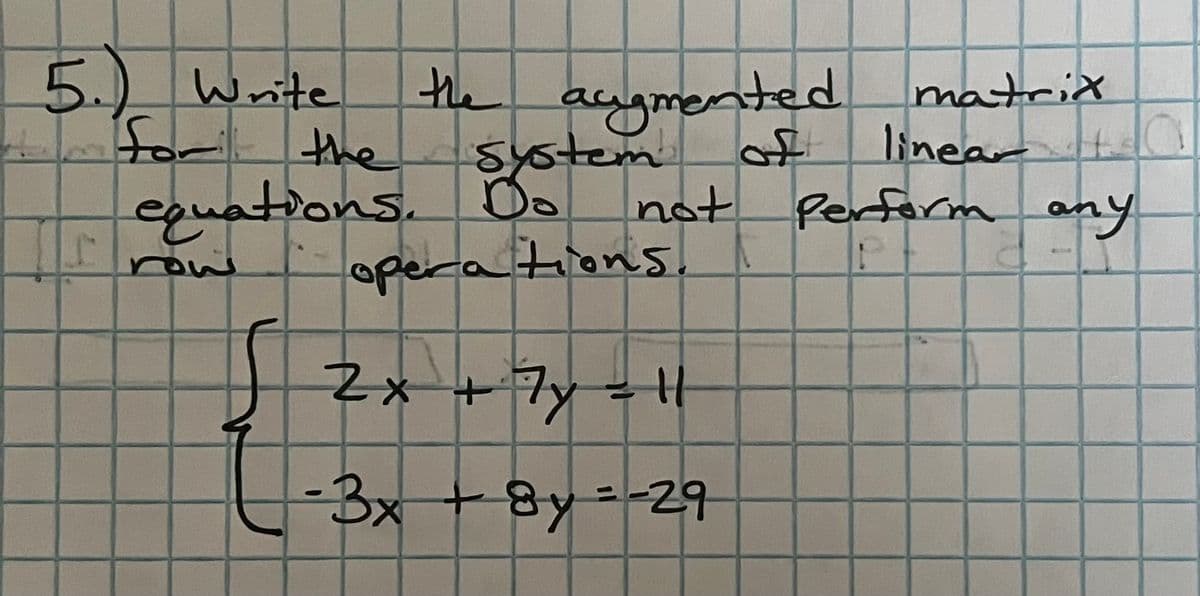 5.) Write the augmented matrix
for the system of linear
equations. Do not perform any
row operations.
2x + 7y = 11
-3x + 8y = -29